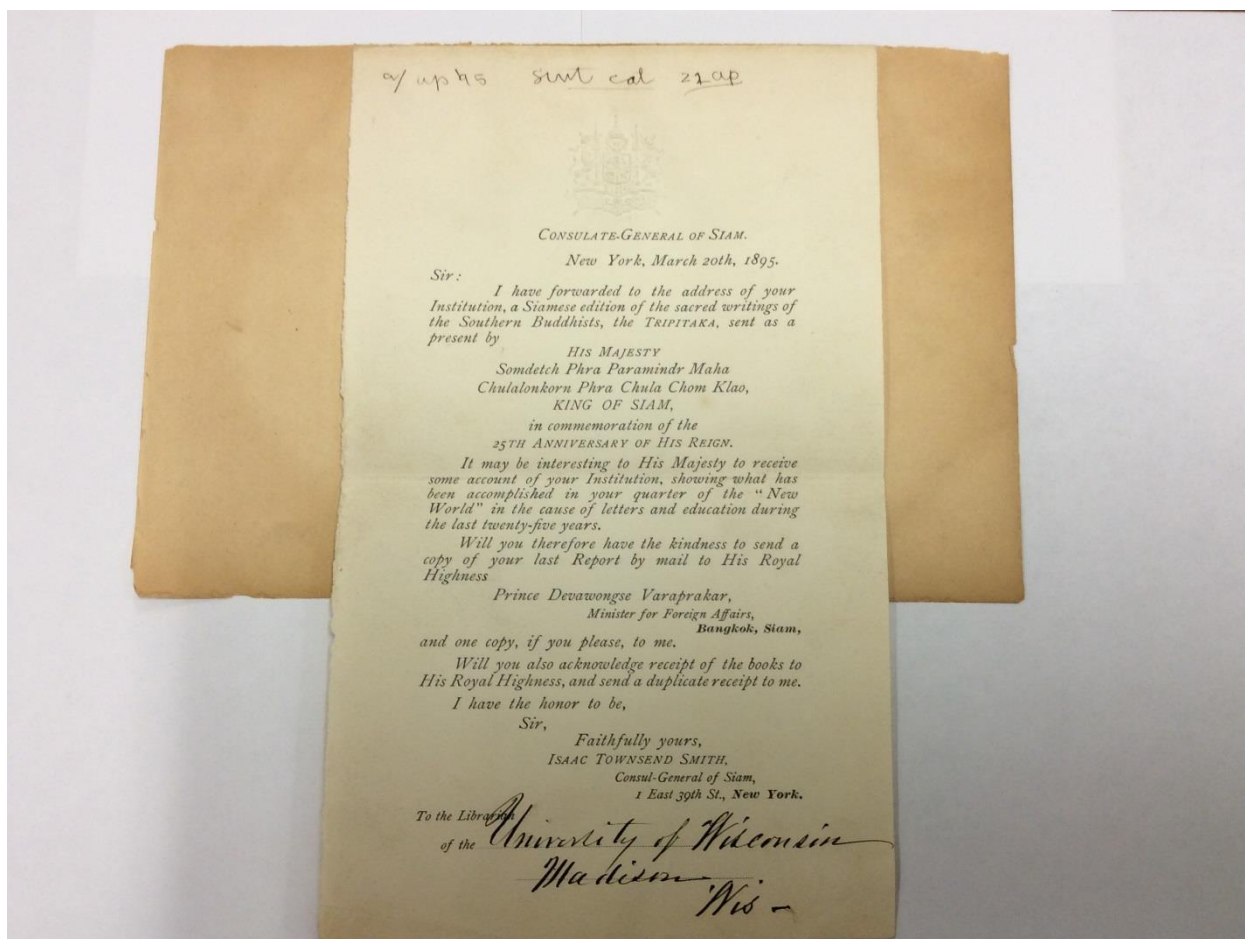 ap 95 sent cal 22 ap
CONSULATE-GENERAL OF SIAM.
New York, March 20th, 1895.
Sir:
I have forwarded to the address of your
Institution, a Siamese edition of the sacred writings of
the Southern Buddhists, the TRIPITAKA, sent as a
present by
HIS MAJESTY
Somdetch Phra Paramindr Maha
Chulalonkorn Phra Chula Chom Klao,
KING OF SIAM,
in commemoration of the
25TH ANNIVERSARY OF HIS REIGN.
It may be interesting to His Majesty to receive
some account of your Institution, showing what has
been accomplished in your quarter of the "New
World" in the cause of letters and education during
the last twenty-five years.
Will you therefore have the kindness to send a
copy of your last Report by mail to His Royal
Highness
Prince Devawongse Varaprakar,
Minister for Foreign Affairs,
Bangkok, Siam,
and one copy, if you please, to me.
Will you also acknowledge receipt of the books to
His Royal Highness, and send a duplicate receipt to me.
I have the honor to be,
Sir,
Faithfully yours,
ISAAC TOWNSEND SMITH,
Consul-General of Siam,
1 East 39th St., New York.
To the Librarian
of the University of Wisconsin
Madison
Wis -